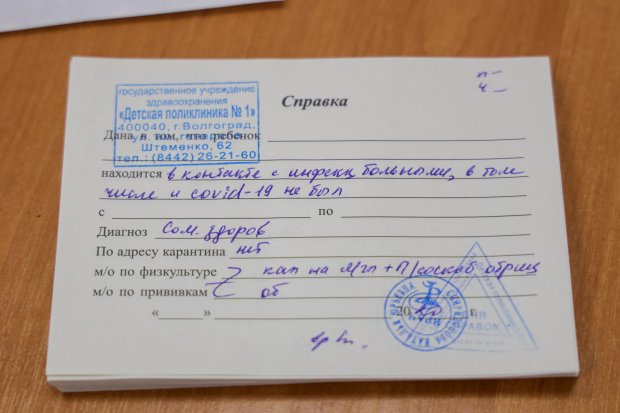 п –
ч –
государственное учреждение
здравоохранения
«Детская поликлиника № 1»
400040, г.Волгоград,
Штеменко, 62
тел.: (8442) 26-21-60
Справка
Дана в том, что ребенок
находится в контакте с инфекц больными, в том
числе и covid-19 не был
с по
Диагноз Сом. здоров
По адресу карантина нет
м/о по физкультуре кал на я/гл + П/соскоб отриц
м/о по прививкам об
« » 20 г.
ВРАЧ